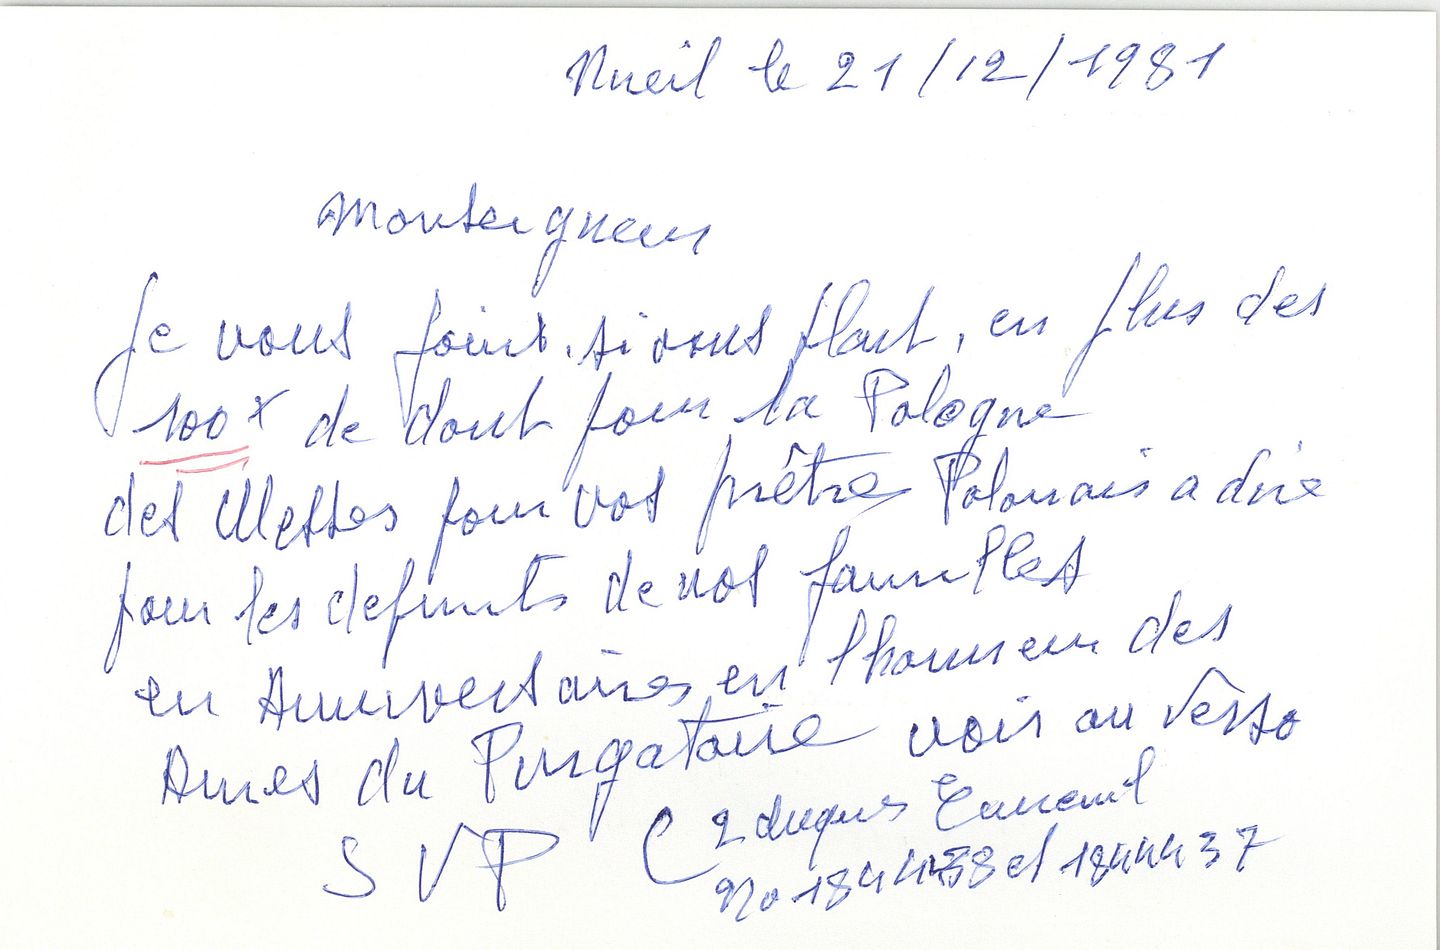 Nueil le 21/12/1981
Monseigneur
Je vous joint, si vous plait, en plus des
100 F de dont pour la Pologne
des Messes pour vos prêtres Polonais a dire
pour les defunts de nos familles
en Anniversaires en lhonneur des
Ames du Purgatoire voir au verso
SVP ( 2 cheques
No 1844438 et 1844437